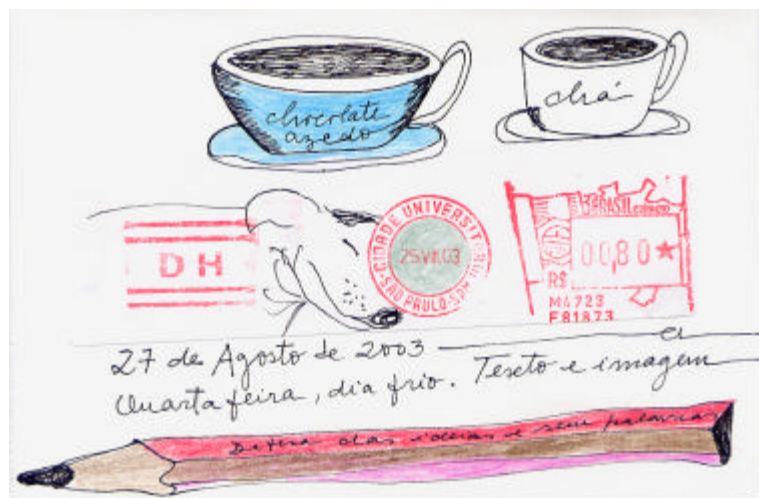 chocolate
azedo
chá
DH
CIDADE UNIVERSIT
25 VIII 03
SÃO PAULO-SP
BRASIL CORREIO
00,80★
R$
M4723
F81873
27 de Agosto de 2003
Quarta feira, dia frio. Texto e imagem
das ideias e sem palavras